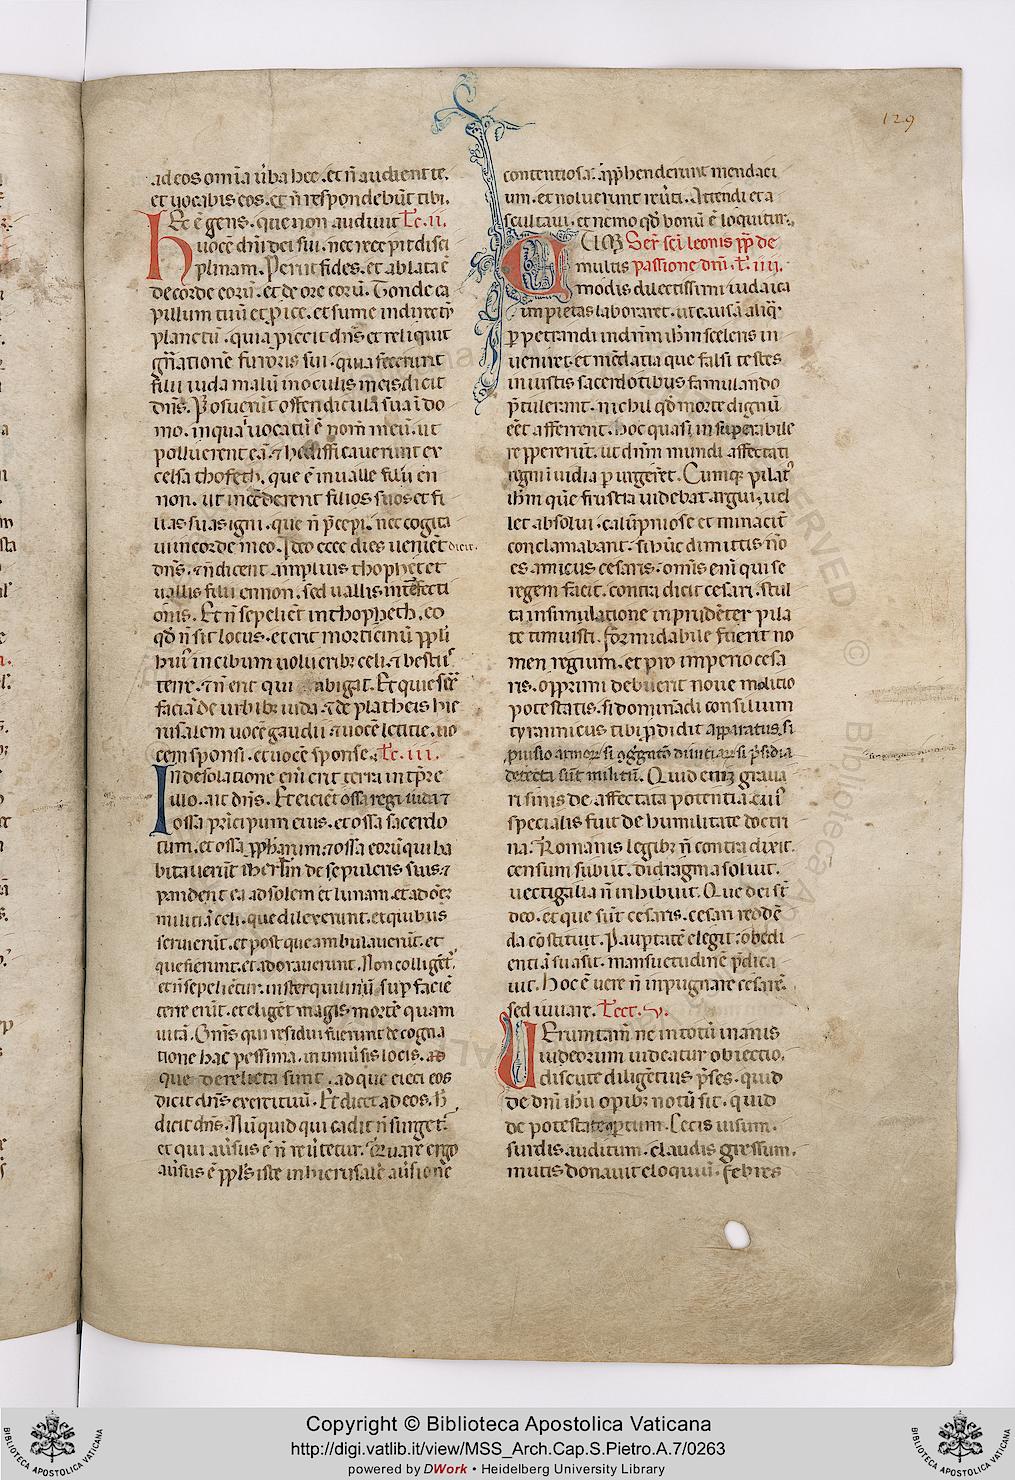 129
ad eos om̄ia ūba hec. et n̄ audient te.
et vocabis eos. et n̄ respondebūt tibi.
Hec ē gens. que non audiuit Lc̄. ii.
uocē dn̄i dei sui. nec recepit disci
plinam. Periit fides. et ablata ē
de corde eorū. et de ore eorū. Tonde ca
pillum tuū et ꝓice. et sume in directū
planctū. quia ꝓiecit dn̄s et reliquit
gn̄ationē furoris sui. quia fecerunt
filii iuda malū in oculis meis dicit
dn̄s. Posuerūt offendicula sua ī do
mo. in qua īuocatū ē nom̄ meū. ut
polluerent eā. ⁊ hedifficauerunt ex
celsa thofeth. que ē in ualle filii en
non. ut incēderent filios suos et fi
lias suas igni. que n̄ p̄cepi. nec cogita
ui in corde meo. Ideo ecce dies ueniēt dicit.
dn̄s. ⁊ n̄ dicent amplius thophet et
uallis filii ennon. sed uallis interfecti
onis. Et n̄ sepeliēt in thopheth. eo
qd̄ n̄ sit locus. et erit morticinū ppl̄i
huiꝰ in cibum uolucribꝫ celi. ⁊ bestiis
terre. ⁊ n̄ erit qui abigat. Et quiesc̄e
faciā de urbibꝫ iuda. ⁊ de plateis hie
rusalem uocē gaudii ⁊ uocē letitie. uo
cem sponsi. et uocē sponse. Lc̄. iii.
In desolatione enī erit terra in tp̄re
illo. ait dn̄s. Et eiciēt ossa regū iuda ⁊
ossa prīcipum eius. et ossa sacerdo
tum. et ossa ꝓph̄arum. ⁊ ossa eorū qui ha
bitauerūt iherl̄m de sepulcris suis. ⁊
pandent ea ad solem et lunam. et ad oēm
militiā celi. que dilexerunt. et quibus
seruierūt. et post que ambulauerūt. et
quesierunt. et adorauerunt. Non colligēt.
et n̄ sepeliētur. in sterquiliniū sup̄ faciē
terre erūt. et eligēt magis mortē quam
uitā. Om̄s qui residui fuerunt de cogna
tione hac pessima. in uniūsis locis. ad
que derelicta sunt. ad que eieci eos
dicit dn̄s exercituū. Et dicet ad eos. h̄
dicit dn̄s. Nūquid qui cadit n̄ surget.
et qui aūsus ē n̄ reūtetur. Quare ergo
aūsus ē ppl̄s iste in hierusalē aūsione
contentiosa. app̄henderunt mendaci
um. et noluerunt reūti. Attendi et a
scultaui. et nemo qd̄ bonū ē loquitur.
CUMQꝫ Ser̄. sc̄i leonis pp̄ de
multis passione dn̄i. L̄. iiii.
modis dilectissimi iudaica
impietas laboraret. ut causā aliqꝫ
ꝑpetrandi in dn̄m ih̄m sceleris in
ueniret. et mēdatia que falsi testes
iniustis sacerdotibus famulando
ꝓtulerunt. nichil qd̄ morte dignū
eēt afferrent. hoc quasi insuperabile
reppererūt. ut dn̄m mundi affectati
regni īuidia ꝑurgerēt. Cumqꝫ pilatꝰ
ih̄m quē frustra uidebat argui. uel
let absolui. calūpniose et minacit̄
conclamabant. si hūc dimittis nō
es amicus cesaris. om̄is enī qui se
regem facit. contra dicit cesari. Stul
ta insimulatione inprudēter pila
te timuisti. formidabile fuerit no
men regium. et pro imperio cesa
ris. opprimi debuerit noue molitio
potestatis. si dominādi consilium
tyrannicus tibi ꝓdidit apparatus. si
ꝓuisio armoꝝ. si ꝯgregatō diuitiaꝝ. si p̄sidia
detecta sūt militū. Quid eum graua
ri sinis de affectata potentia. cuiꝰ
specialis fuit de humilitate doctri
na. Romanis legibꝫ n̄ contradixit.
censum subiit. didragma soluit.
uectigalia n̄ inhibuit. Que dei st̄
deo. et que sūt cesaris. cesari reddē
da cōstituit. Paup̄tatē elegit. obedi
entiā suasit. mansuetudinē p̄dica
uit. Hoc ē uere n̄ inpugnare cesarē.
sed iuuare. Lect. v.
Uerumtam̄ ne in totū inanis
iudeorum uideatur obiectio.
discute diligētius p̄ses. quid
de dn̄i ih̄u opibꝫ notū sit. quid
de potestate aꝑtum. Cecis uisum.
surdis auditum. claudis gressum.
mutis donauit eloquiū. febres
Copyright © Biblioteca Apostolica Vaticana
http://digi.vatlib.it/view/MSS_Arch.Cap.S.Pietro.A.7/0263
powered by DWork • Heidelberg University Library